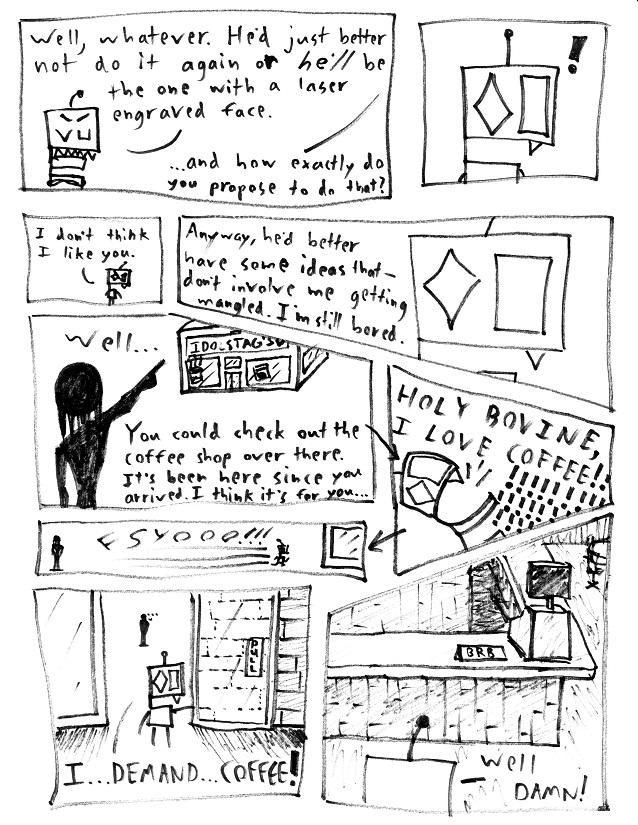 Well, whatever. He'd just better
not do it again or he'll be
the one with a laser
engraved face.
...and how exactly do
you propose to do that?
!
I don't think
I like you.
Anyway, he'd better
have some ideas that—
don't involve me getting
mangled. I'm still bored.
Well...
You could check out the
coffee shop over there.
It's been here since you
arrived. I think it's for you...
HOLY BOVINE,
I LOVE COFFEE!!
!!!!!!!!
!!!!!!!!
!!!!!!!!
...
PULL
I...DEMAND...COFFEE!
BRB
Well
DAMN!